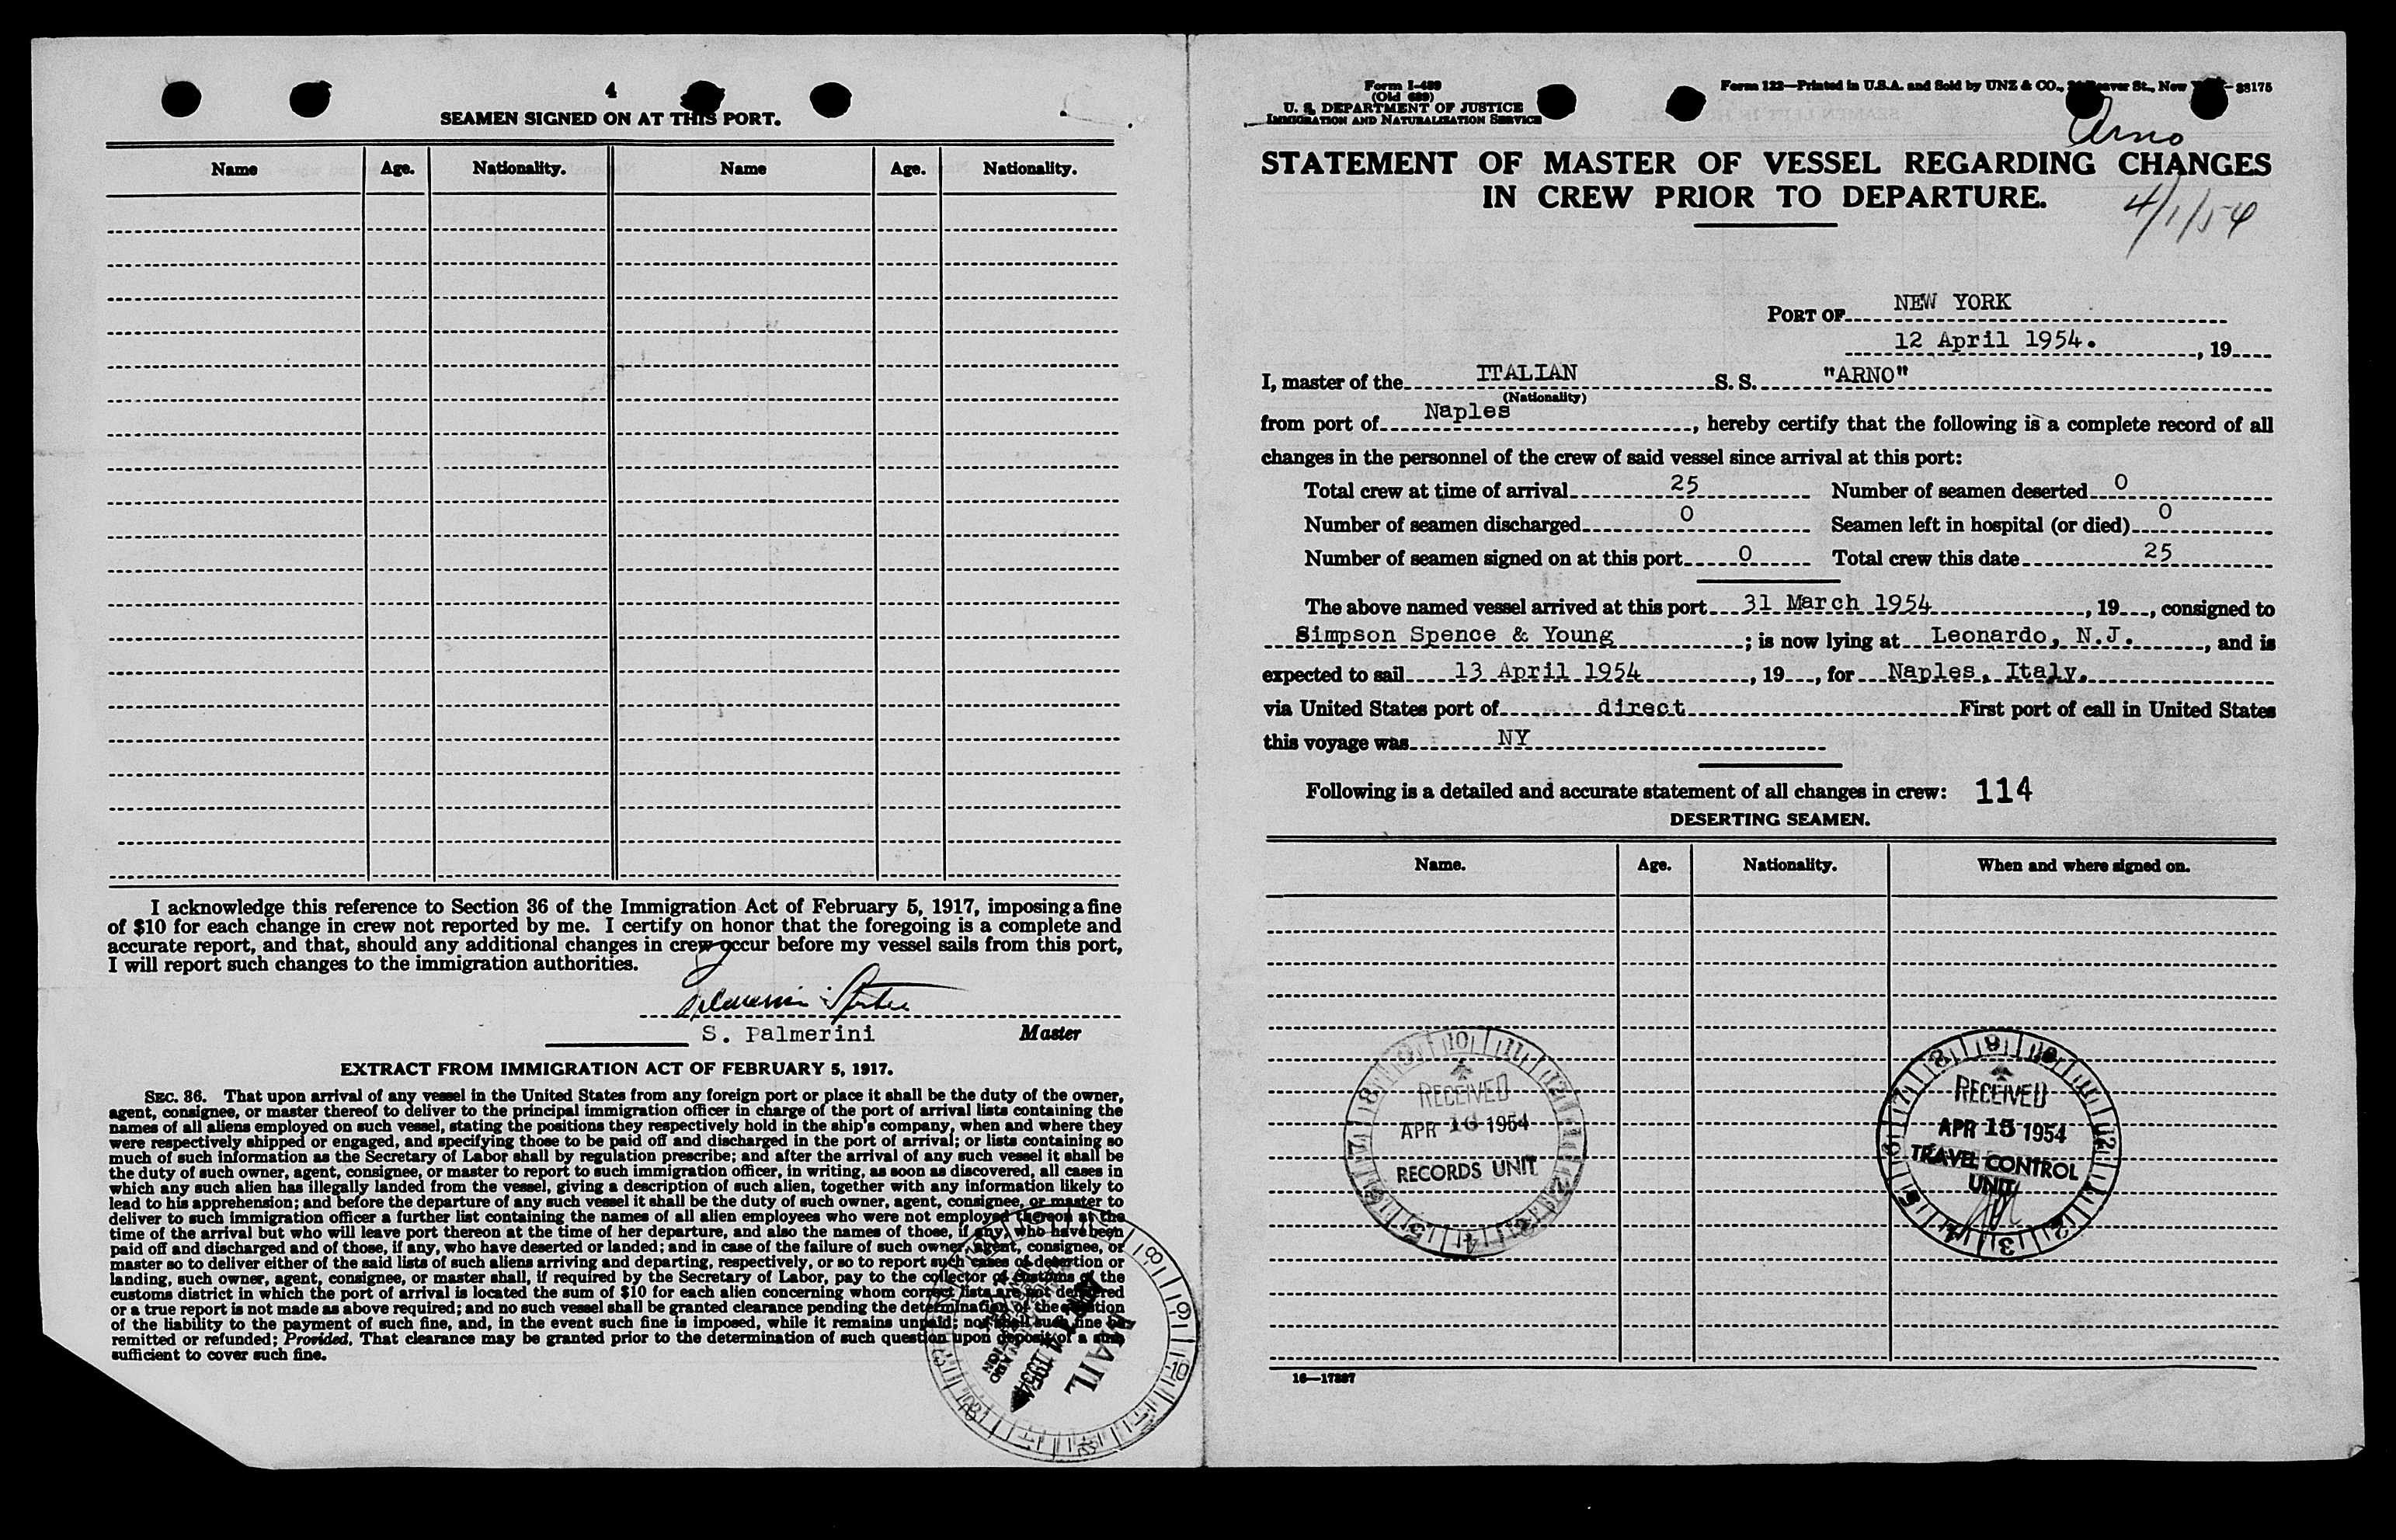 4
SEAMEN SIGNED ON AT THIS PORT.
Name Age. Nationality. Name Age. Nationality.
I acknowledge this reference to Section 36 of the Immigration Act of February 5, 1917, imposing a fine
of $10 for each change in crew not reported by me. I certify on honor that the foregoing is a complete and
accurate report, and that, should any additional changes in crew occur before my vessel sails from this port,
I will report such changes to the immigration authorities.
S. Palmerini Master
EXTRACT FROM IMMIGRATION ACT OF FEBRUARY 5, 1917.
SEC. 36. That upon arrival of any vessel in the United States from any foreign port or place it shall be the duty of the owner,
agent, consignee, or master thereof to deliver to the principal immigration officer in charge of the port of arrival lists containing the
names of all aliens employed on such vessel, stating the positions they respectively hold in the ship's company, when and where they
were respectively shipped or engaged, and specifying those to be paid off and discharged in the port of arrival; or lists containing so
much of such information as the Secretary of Labor shall by regulation prescribe; and after the arrival of any such vessel it shall be
the duty of such owner, agent, consignee, or master to report to such immigration officer, in writing, as soon as discovered, all cases in
which any such alien has illegally landed from the vessel, giving a description of such alien, together with any information likely to
lead to his apprehension; and before the departure of any such vessel it shall be the duty of such owner, agent, consignee, or master to
deliver to such immigration officer a further list containing the names of all alien employees who were not employed thereon at the
time of the arrival but who will leave port thereon at the time of her departure, and also the names of those, if any, who have been
paid off and discharged and of those, if any, who have deserted or landed; and in case of the failure of such owner, agent, consignee, or
master so to deliver either of the said lists of such aliens arriving and departing, respectively, or so to report such cases of desertion or
landing, such owner, agent, consignee, or master shall, if required by the Secretary of Labor, pay to the collector of customs of the
customs district in which the port of arrival is located the sum of $10 for each alien concerning whom correct lists are not delivered
or a true report is not made as above required; and no such vessel shall be granted clearance pending the determination of the question
of the liability to the payment of such fine, and, in the event such fine is imposed, while it remains unpaid; nor shall such fine be
remitted or refunded; Provided, That clearance may be granted prior to the determination of such question upon deposit of a sum
sufficient to cover such fine.
MAIL
1954
Form I-489
(Old 689)
U. S. DEPARTMENT OF JUSTICE
IMMIGRATION AND NATURALIZATION SERVICE
Form 122—Printed in U.S.A. and Sold by UNZ & CO., Beaver St., New 38175
Arno
STATEMENT OF MASTER OF VESSEL REGARDING CHANGES
IN CREW PRIOR TO DEPARTURE.
4/1/54
PORT OF NEW YORK
12 April 1954. , 19
I, master of the ITALIAN S. S. "ARNO"
(Nationality)
from port of Naples , hereby certify that the following is a complete record of all
changes in the personnel of the crew of said vessel since arrival at this port:
Total crew at time of arrival 25 Number of seamen deserted 0
Number of seamen discharged 0 Seamen left in hospital (or died) 0
Number of seamen signed on at this port 0 Total crew this date 25
The above named vessel arrived at this port 31 March 1954 , 19 , consigned to
Simpson Spence & Young ; is now lying at Leonardo, N.J. , and is
expected to sail 13 April 1954 , 19 , for Naples, Italy.
via United States port of direct First port of call in United States
this voyage was NY
Following is a detailed and accurate statement of all changes in crew: 114
DESERTING SEAMEN.
Name. Age. Nationality. When and where signed on.
RECEIVED
APR 16 1954
RECORDS UNIT
RECEIVED
APR 15 1954
TRAVEL CONTROL
UNIT
16—17887